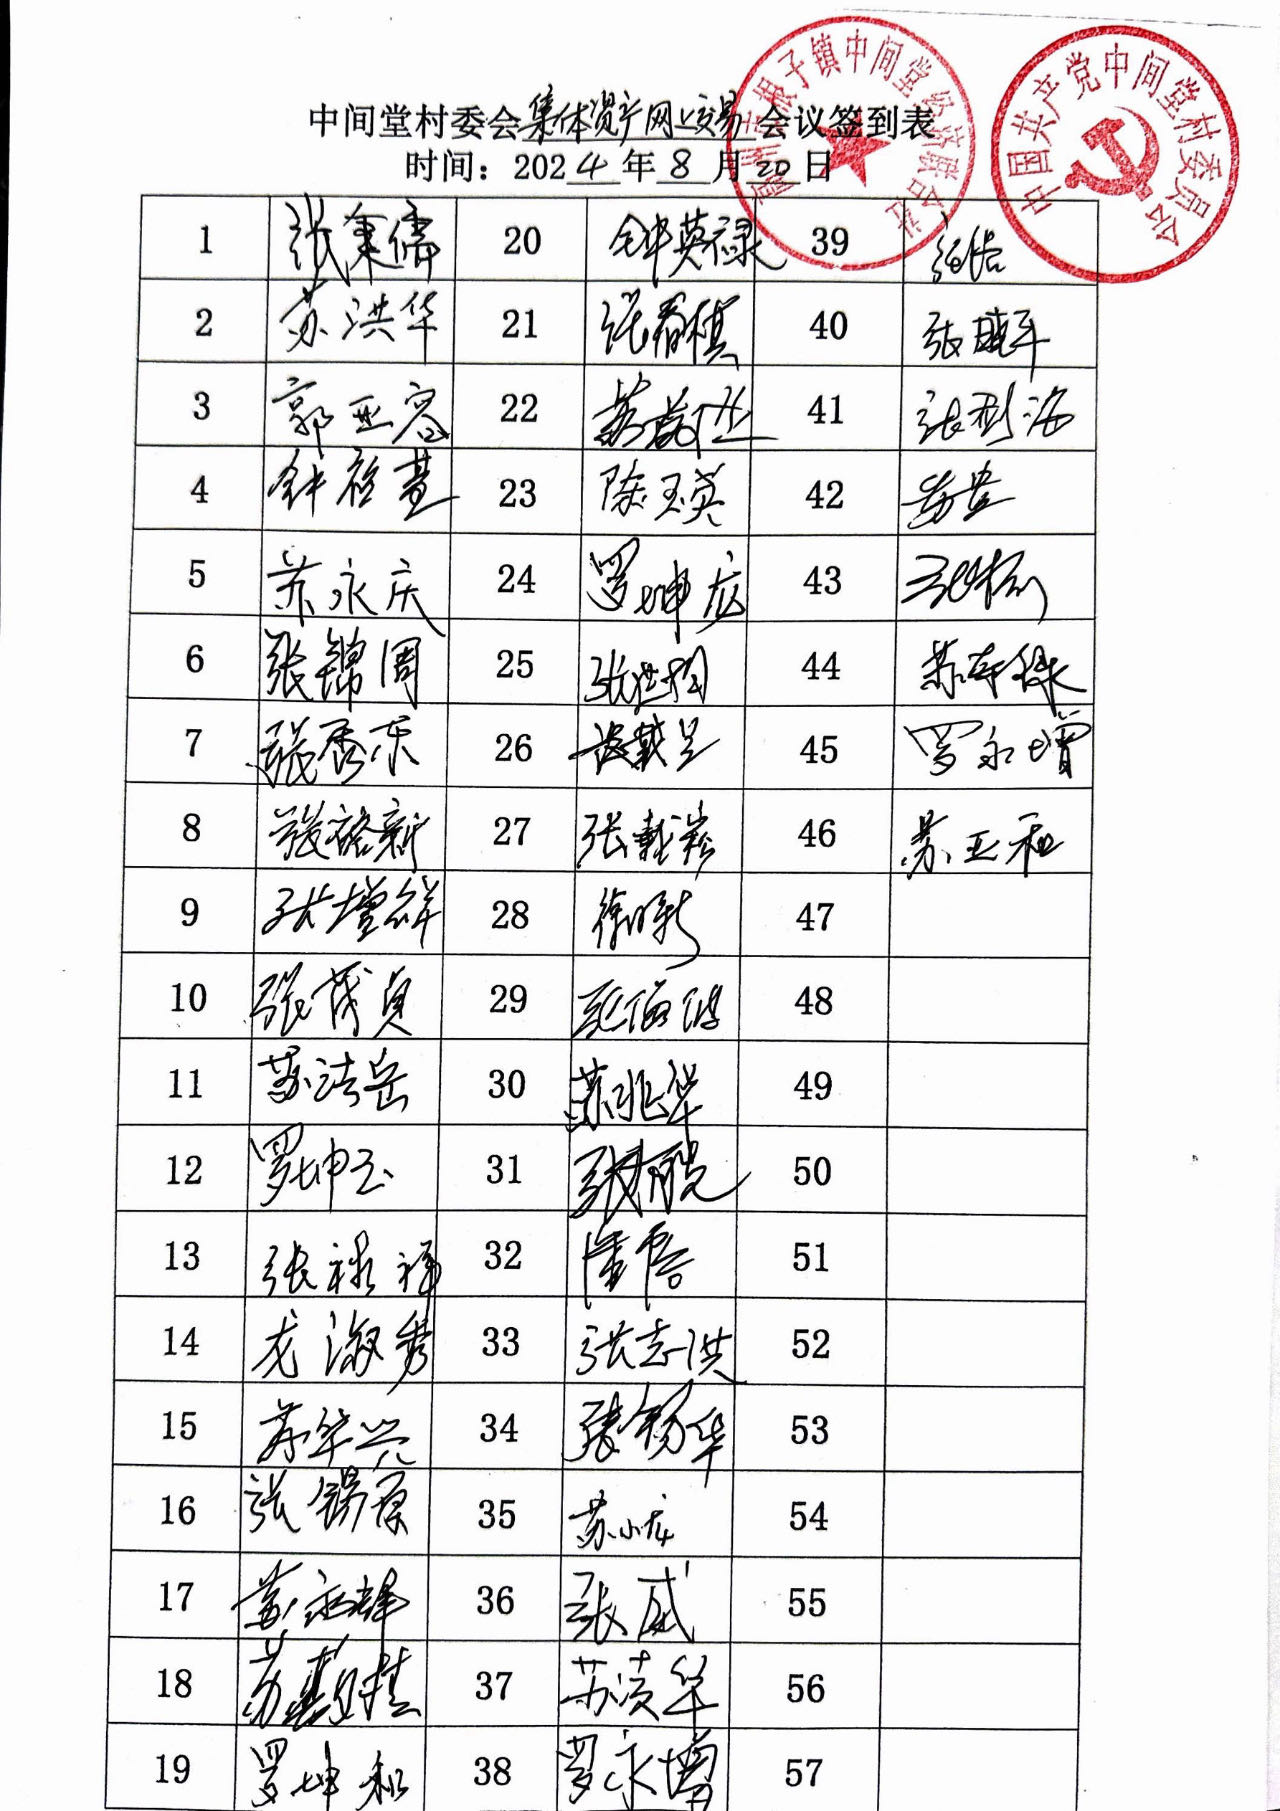 中间堂村委会集体资产网上交易会议签到表
时间：2024年8月20日
高州市根子镇中间堂经济联合社
中国共产党中间堂村委员会
1 张秉儒 20 钟英禄 39
2 苏洪华 21 张春棋 40 张晓军
3 郭亚容 22 41 张利海
4 钟裕萱 23 陈玉英 42
5 苏永庆 24 罗坤龙 43
6 张锦周 25 张世炯 44
7 张秀东 26 张戴呈 45 罗永增
8 张裕新 27 张戴崧 46 苏亚和
9 张增祥 28 徐明新 47
10 张茂贞 29 48
11 苏洁岳 30 苏兆华 49
12 罗坤玉 31 50
13 张禄祥 32 51
14 龙淑秀 33 张志洪 52
15 苏华兴 34 张锡华 53
16 张锡原 35 苏小龙 54
17 苏永雄 36 张威 55
18 37 苏凌华 56
19 罗坤和 38 罗永增 57